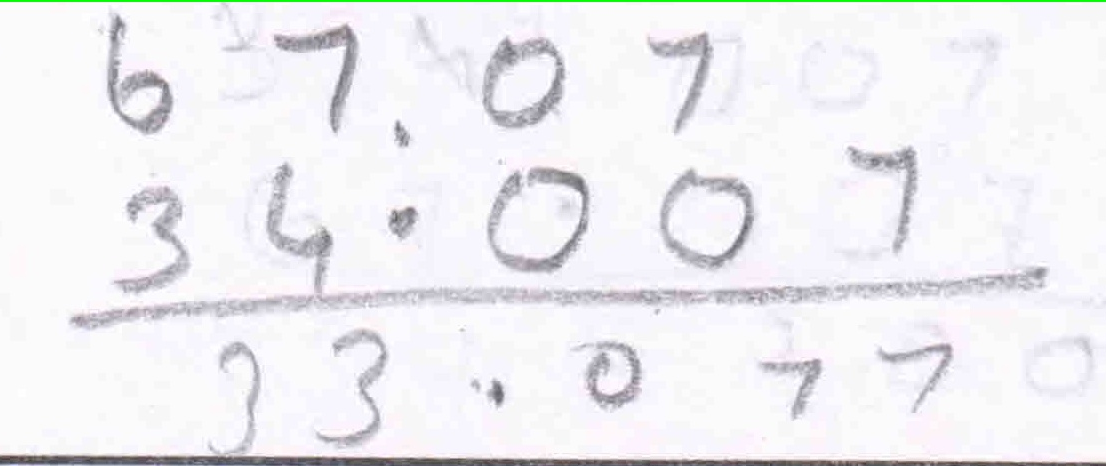 67.07
34.007
33.077